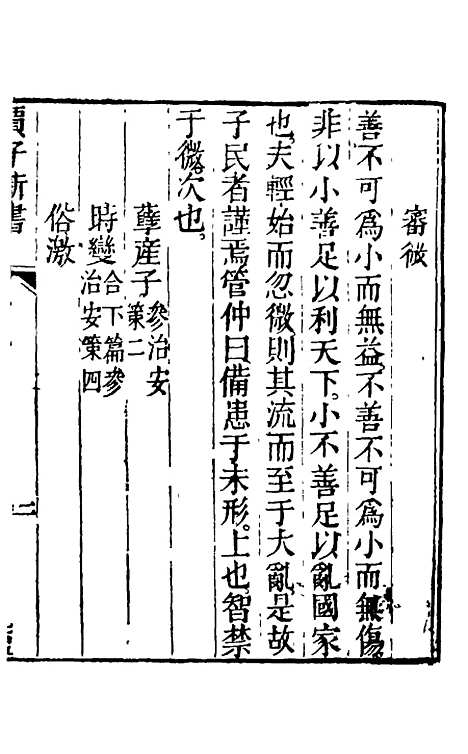 審微
善不可為小而無益不善不可為小而無傷
非以小善足以利天下小不善足以亂國家
也夫輕始而忽微則其流而至于大亂是故
子民者謹焉管仲曰備患于未形上也智禁
于微次也
孽産子參治安策二
時變合下篇參治安策四
俗激
賈子新書
二